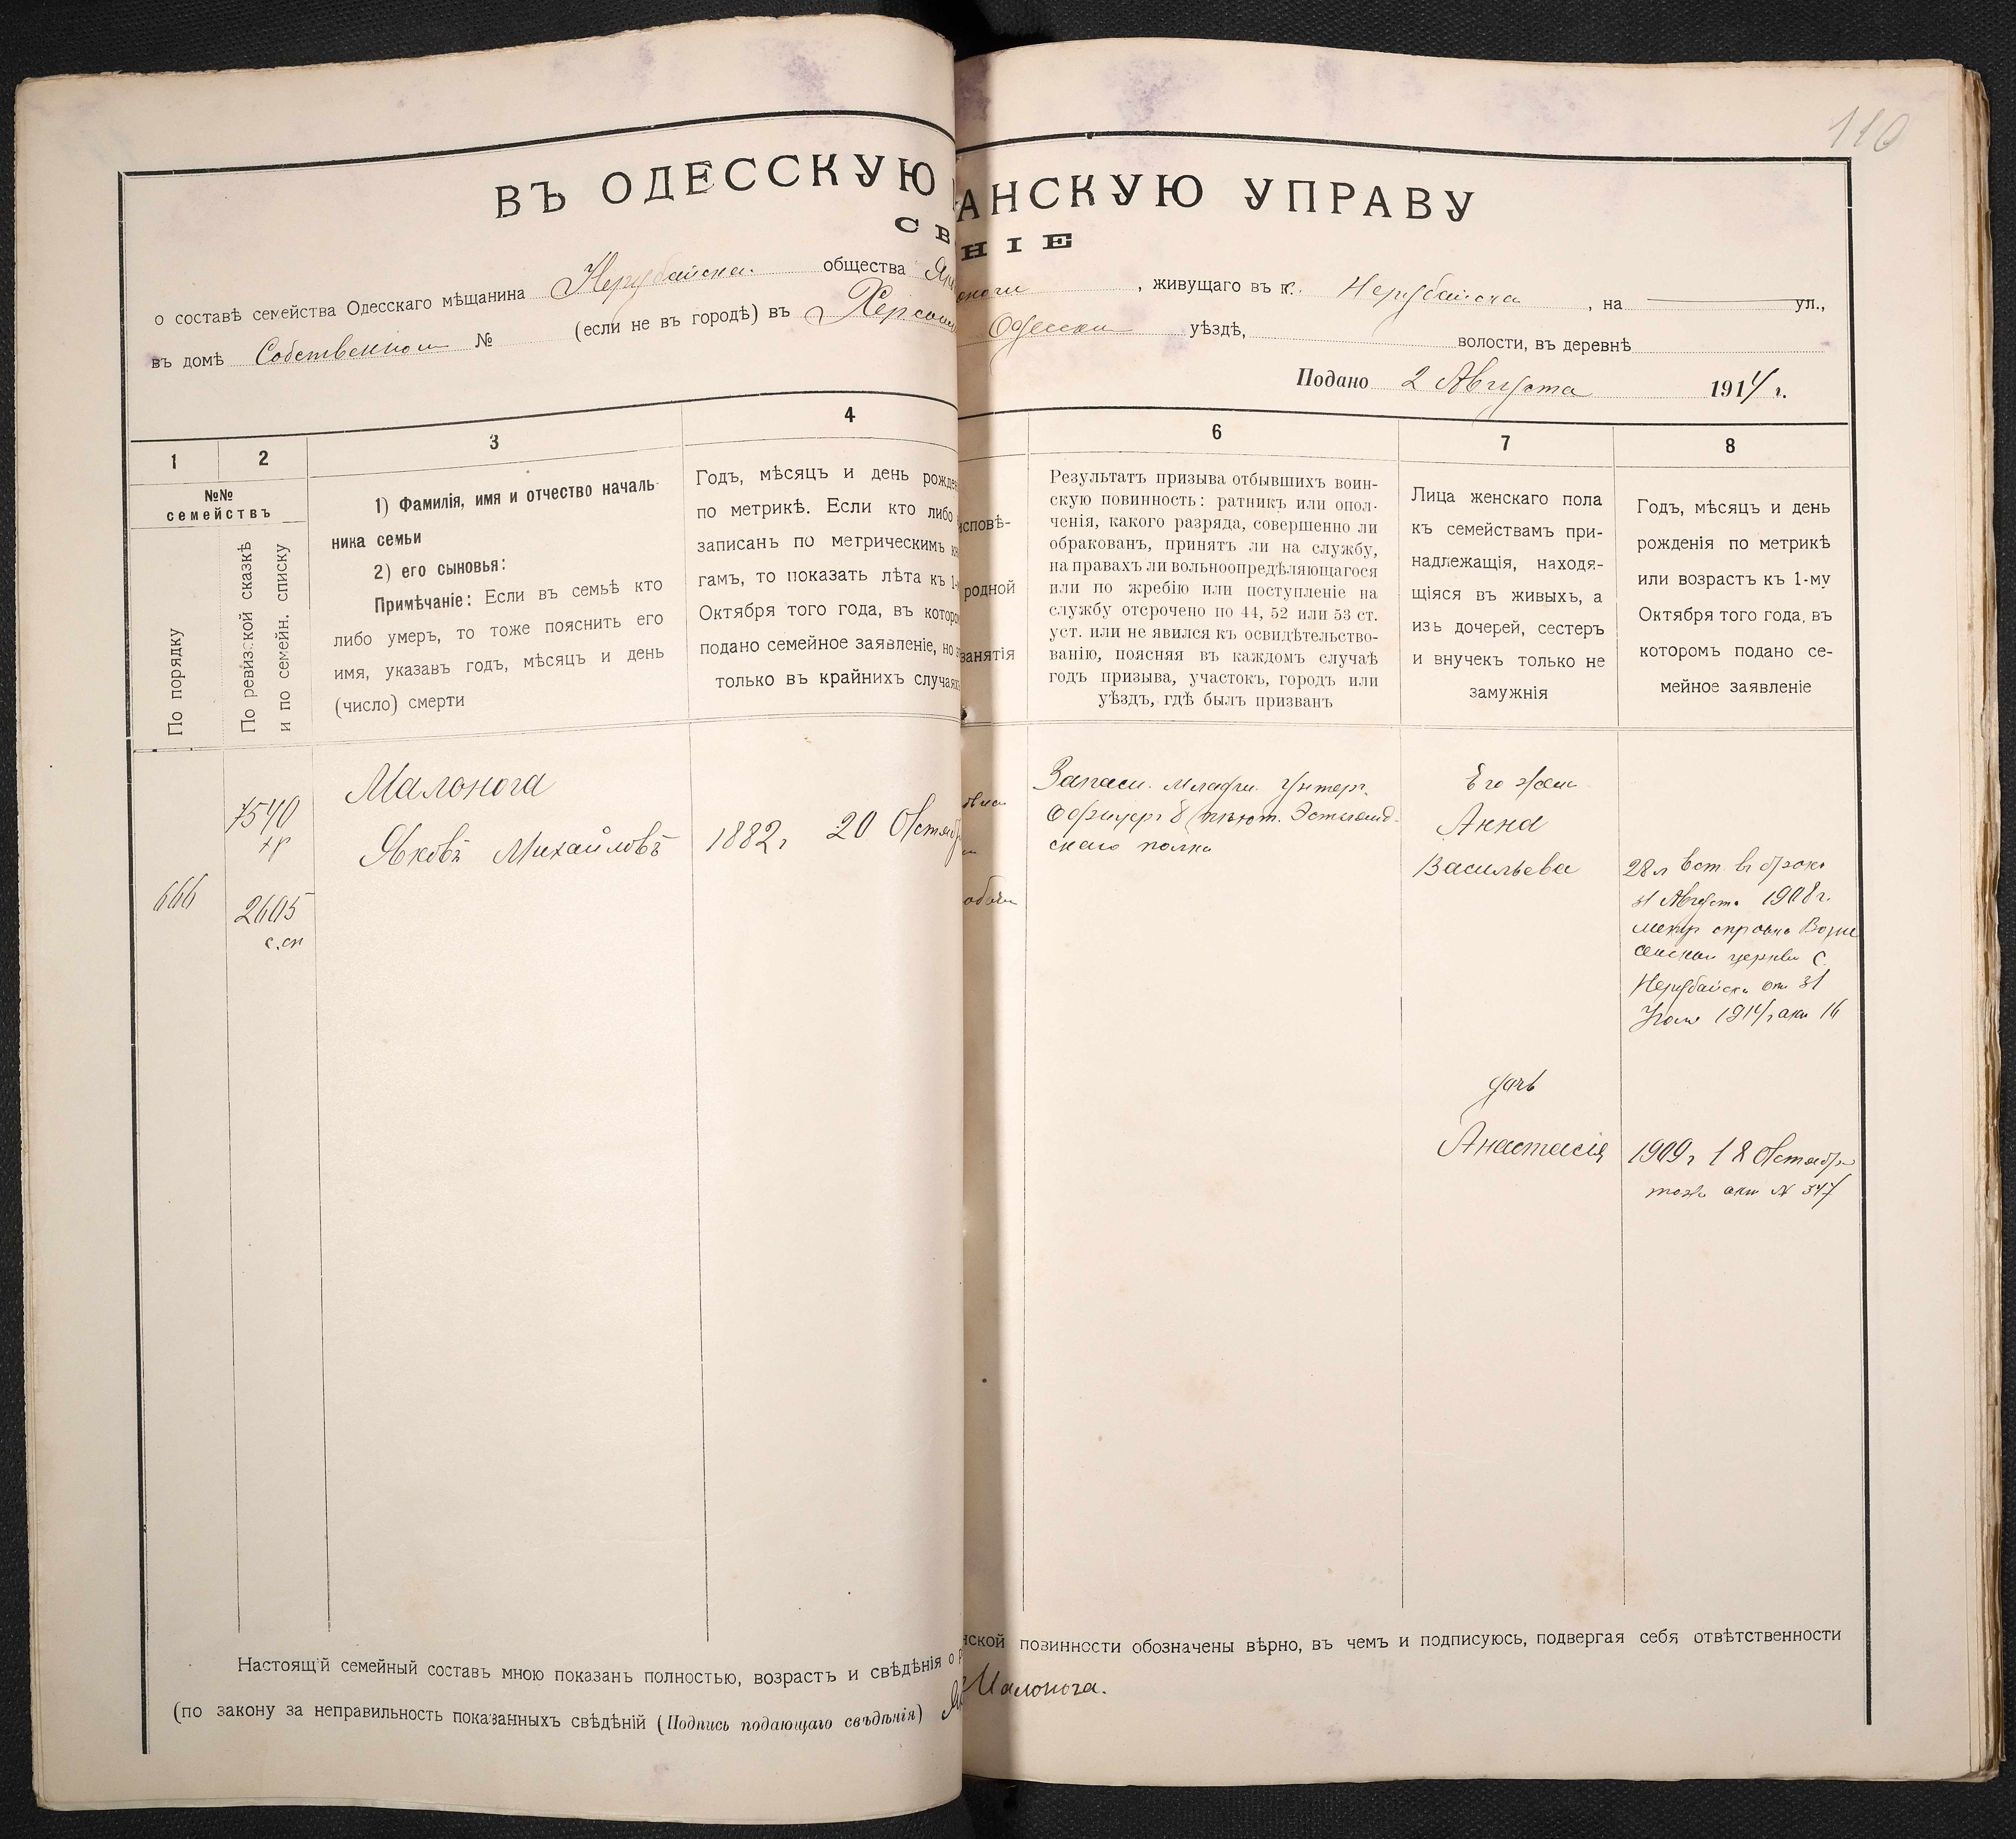 110
ВЪ ОДЕССКУЮ АНСКУЮ УПРАВУ
СВ НІЕ
о составѣ семейства Одесскаго мѣщанина Нерубайска. общества Як оноги , живущаго въ с. Нерубайска , на ул.,
въ домѣ Собственном № (если не въ городѣ) въ Херсон Одесском уѣздѣ, волости, въ деревнѣ
Подано 2 Августа 1914 г.
1
2
3
4
6
7
8
№№
семействъ
По порядку
По ревизской сказкѣ
и по семейн. списку
1) Фамилія, имя и отчество началь-
ника семьи
2) его сыновья:
Примѣчаніе: Если въ семьѣ кто
либо умеръ, то тоже пояснить его
имя, указавъ годъ, мѣсяцъ и день
(число) смерти
Годъ, мѣсяцъ и день рожде
по метрикѣ. Если кто либо
записанъ по метрическимъ к
гамъ, то показать лѣта къ 1-
Октября того года, въ которо
подано семейное заявленіе, но э
только въ крайнихъ случая
исповѣ-
родной
занятія
Результатъ призыва отбывшихъ воин-
скую повинность: ратникъ или опол-
ченія, какого разряда, совершенно ли
обракованъ, принятъ ли на службу,
на правахъ ли вольноопредѣляющагося
или по жребію или поступленіе на
службу отсрочено по 44, 52 или 53 ст.
уст. или не явился къ освидѣтельство-
ванію, поясняя въ каждомъ случаѣ
годъ призыва, участокъ, городъ или
уѣздъ, гдѣ былъ призванъ
Лица женскаго пола
къ семействамъ при-
надлежащія, находя-
щіяся въ живыхъ, а
изъ дочерей, сестеръ
и внучекъ только не
замужнія
Годъ, мѣсяцъ и день
рожденія по метрикѣ
или возрастъ къ 1-му
Октября того года, въ
которомъ подано се-
мейное заявленіе
666
7540
2605
с.сп
Малонога
Яковъ Михайловъ
1882 г 20 Октяб
Запасн. младш. Унтер.
Офицеръ 8 пѣхот. Эстлянд-
скаго полка
Его жена
Анна
Васильева
28 л Вст. въ бракъ
31 Августа 1908 г.
метр справка Возне
сенской церкви С.
Нерубайска от 31
Июля 1914 г акт 16
дочь
Анастасія
1909 г 18 Октября
тоже акт № 347
Настоящій семейный составъ мною показанъ полностью, возрастъ и свѣдѣнія о нской повинности обозначены вѣрно, въ чемъ и подписуюсь, подвергая себя отвѣтственности
(по закону за неправильность показанныхъ свѣдѣній (Подпись подающаго свѣдѣнія) Як Малонога.